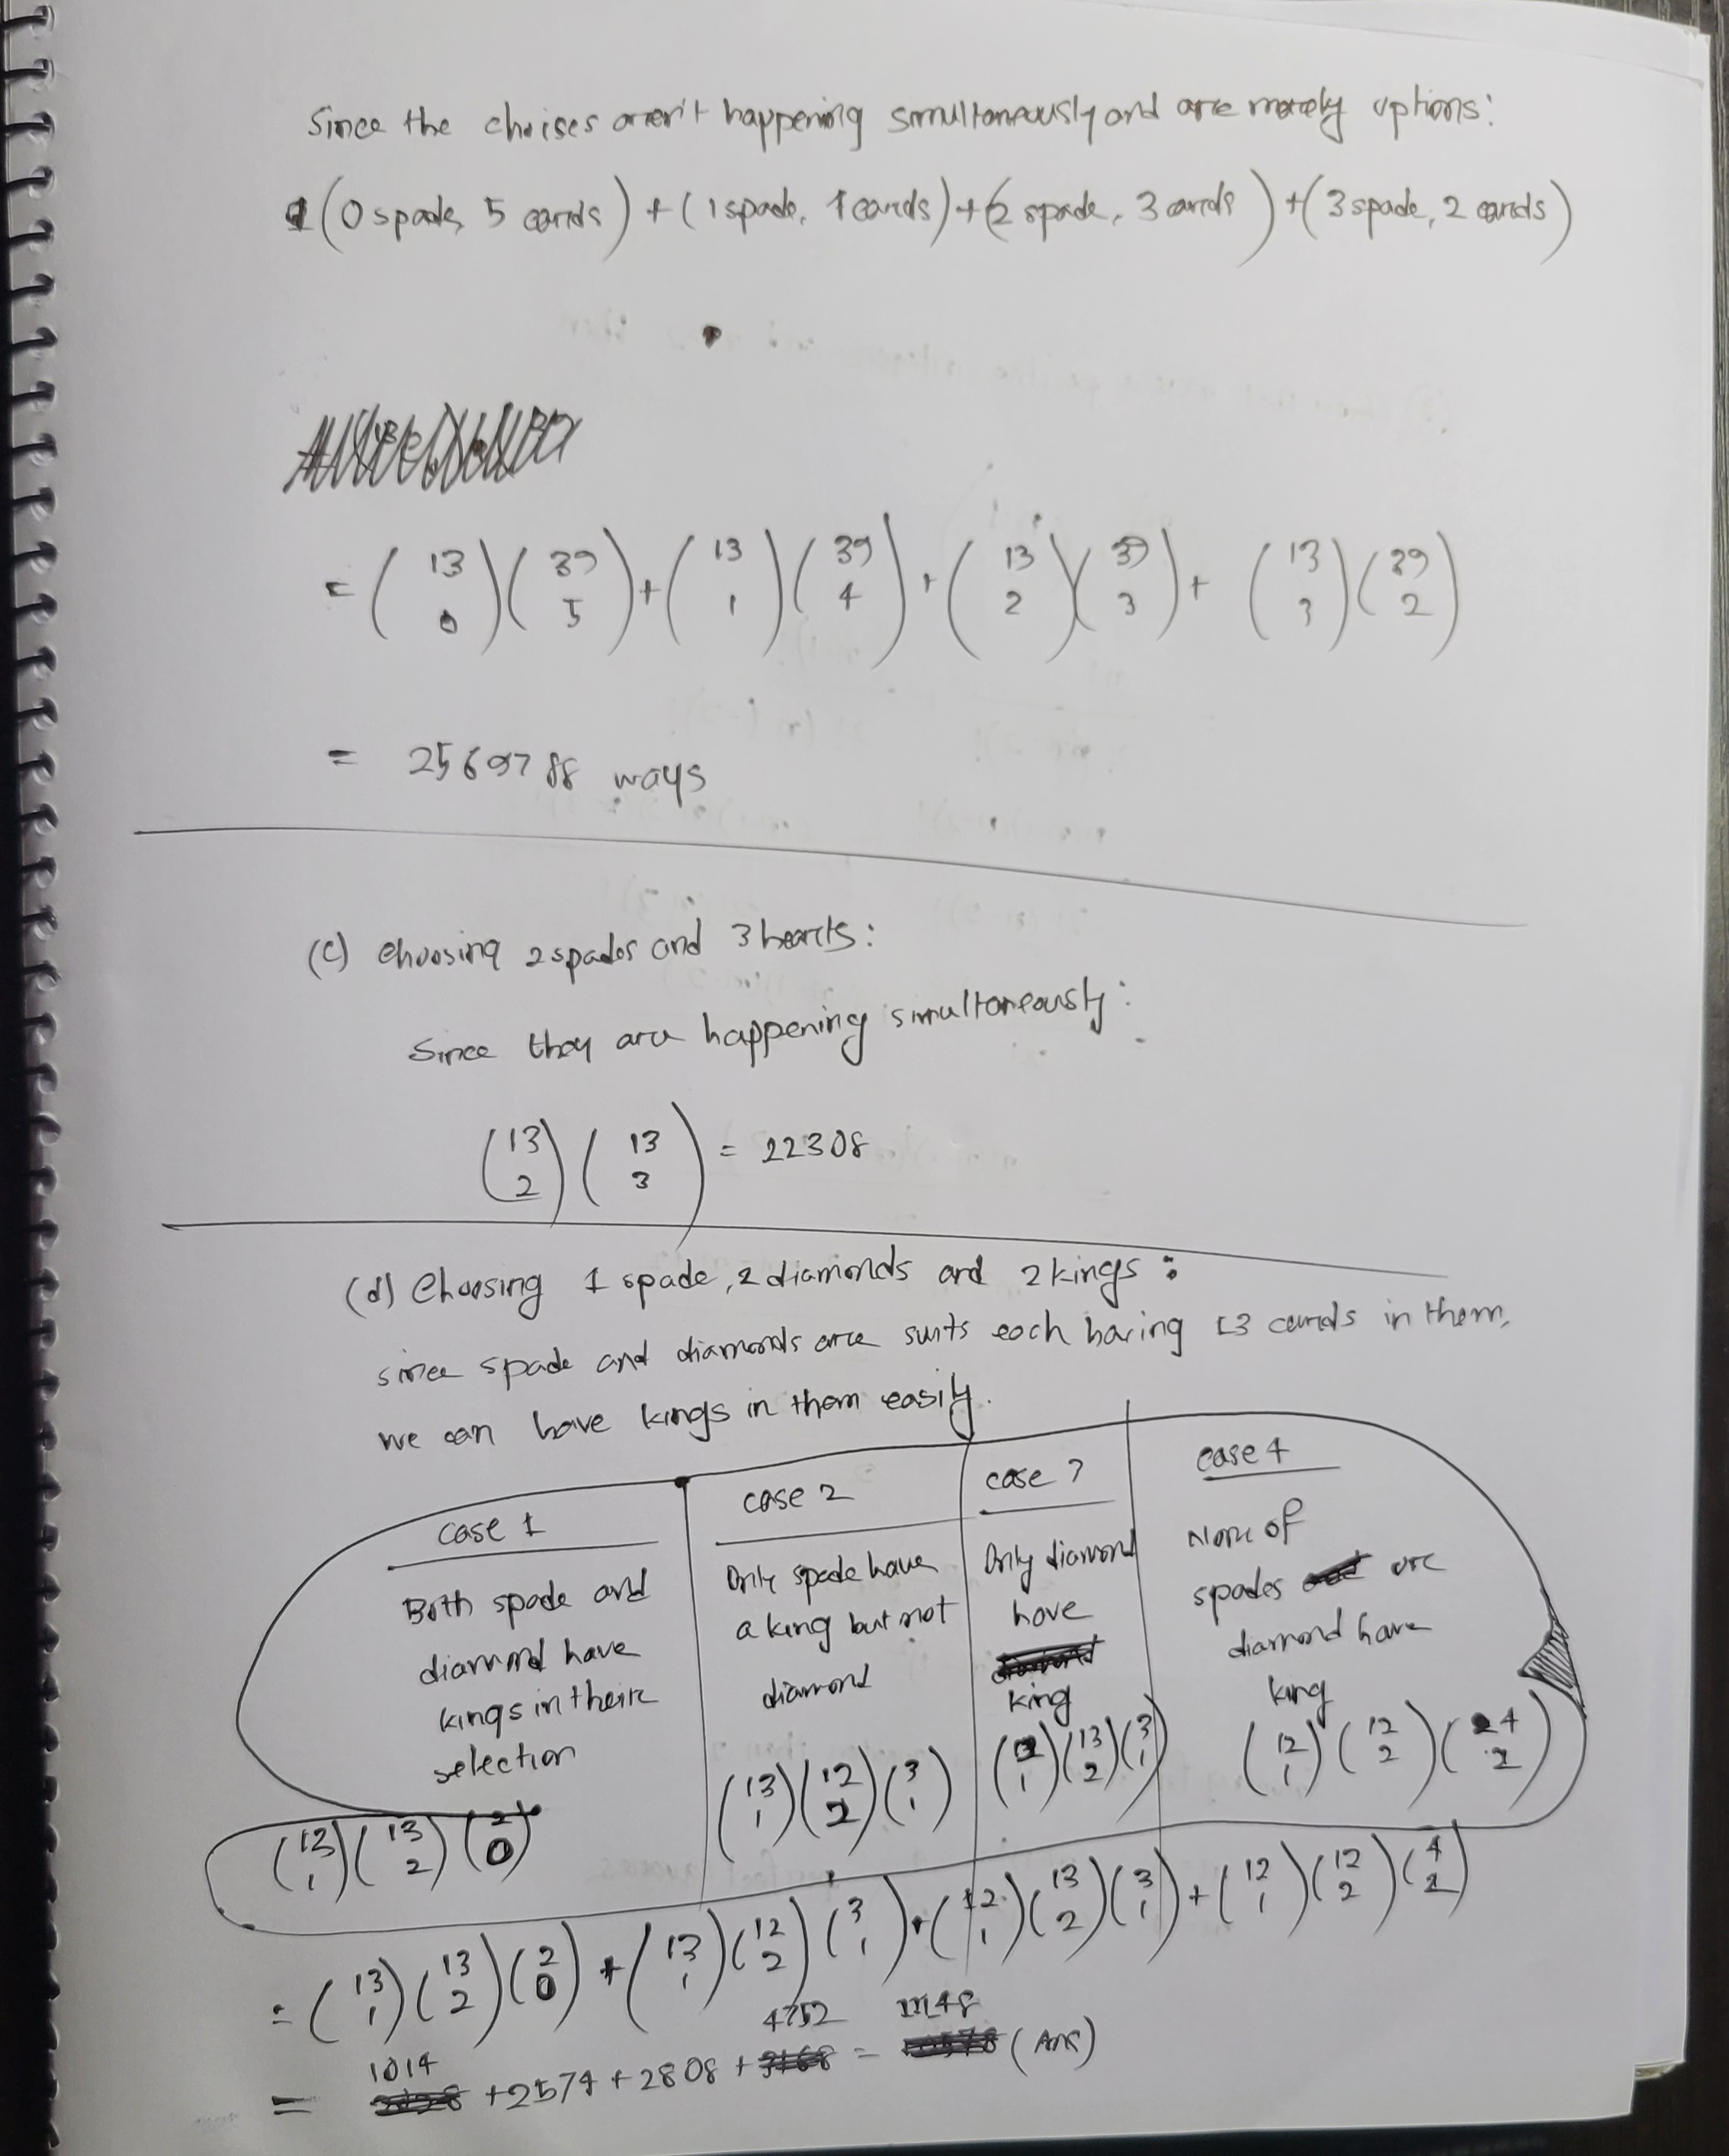 Since the choises aren't happening simultaneously and are merely options:
(0 spade, 5 cards) + (1 spade, 4 cards) + (2 spade, 3 cards) + (3 spade, 2 cards)
= (13 0)(39 5) + (13 1)(39 4) + (13 2)(39 3) + (13 3)(39 2)
= 2569788 ways
(c) choosing 2 spades and 3 hearts:
Since they are happening simultaneously:
(13 2)(13 3) = 22308
(d) Choosing 1 spade, 2 diamonds and 2 kings:
since spade and diamonds are suits each having 13 cards in them,
we can have kings in them easily.
case 1
Both spade and
diamond have
kings in their
selection
(13 1)(13 2)(2 0)
case 2
Only spade have
a king but not
diamond
(13 1)(12 2)(3 1)
case 3
Only diamond
have
king
(12 1)(13 2)(3 1)
case 4
None of
spades or
diamond have
king
(12 1)(12 2)(4 2)
= (13 1)(13 2)(2 0) + (13 1)(12 2)(3 1) + (12 1)(13 2)(3 1) + (12 1)(12 2)(4 2)
= 1014 + 2574 + 2808 + 4752 = 11148 (Ans)